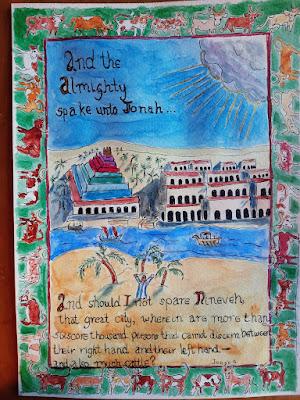 And the
Almighty
spake unto Jonah...
And should I not spare Nineveh,
that great city, wherein are more than
sixscore thousand persons that cannot discern between
their right hand and their left hand—
and also much cattle?
Jonah 4